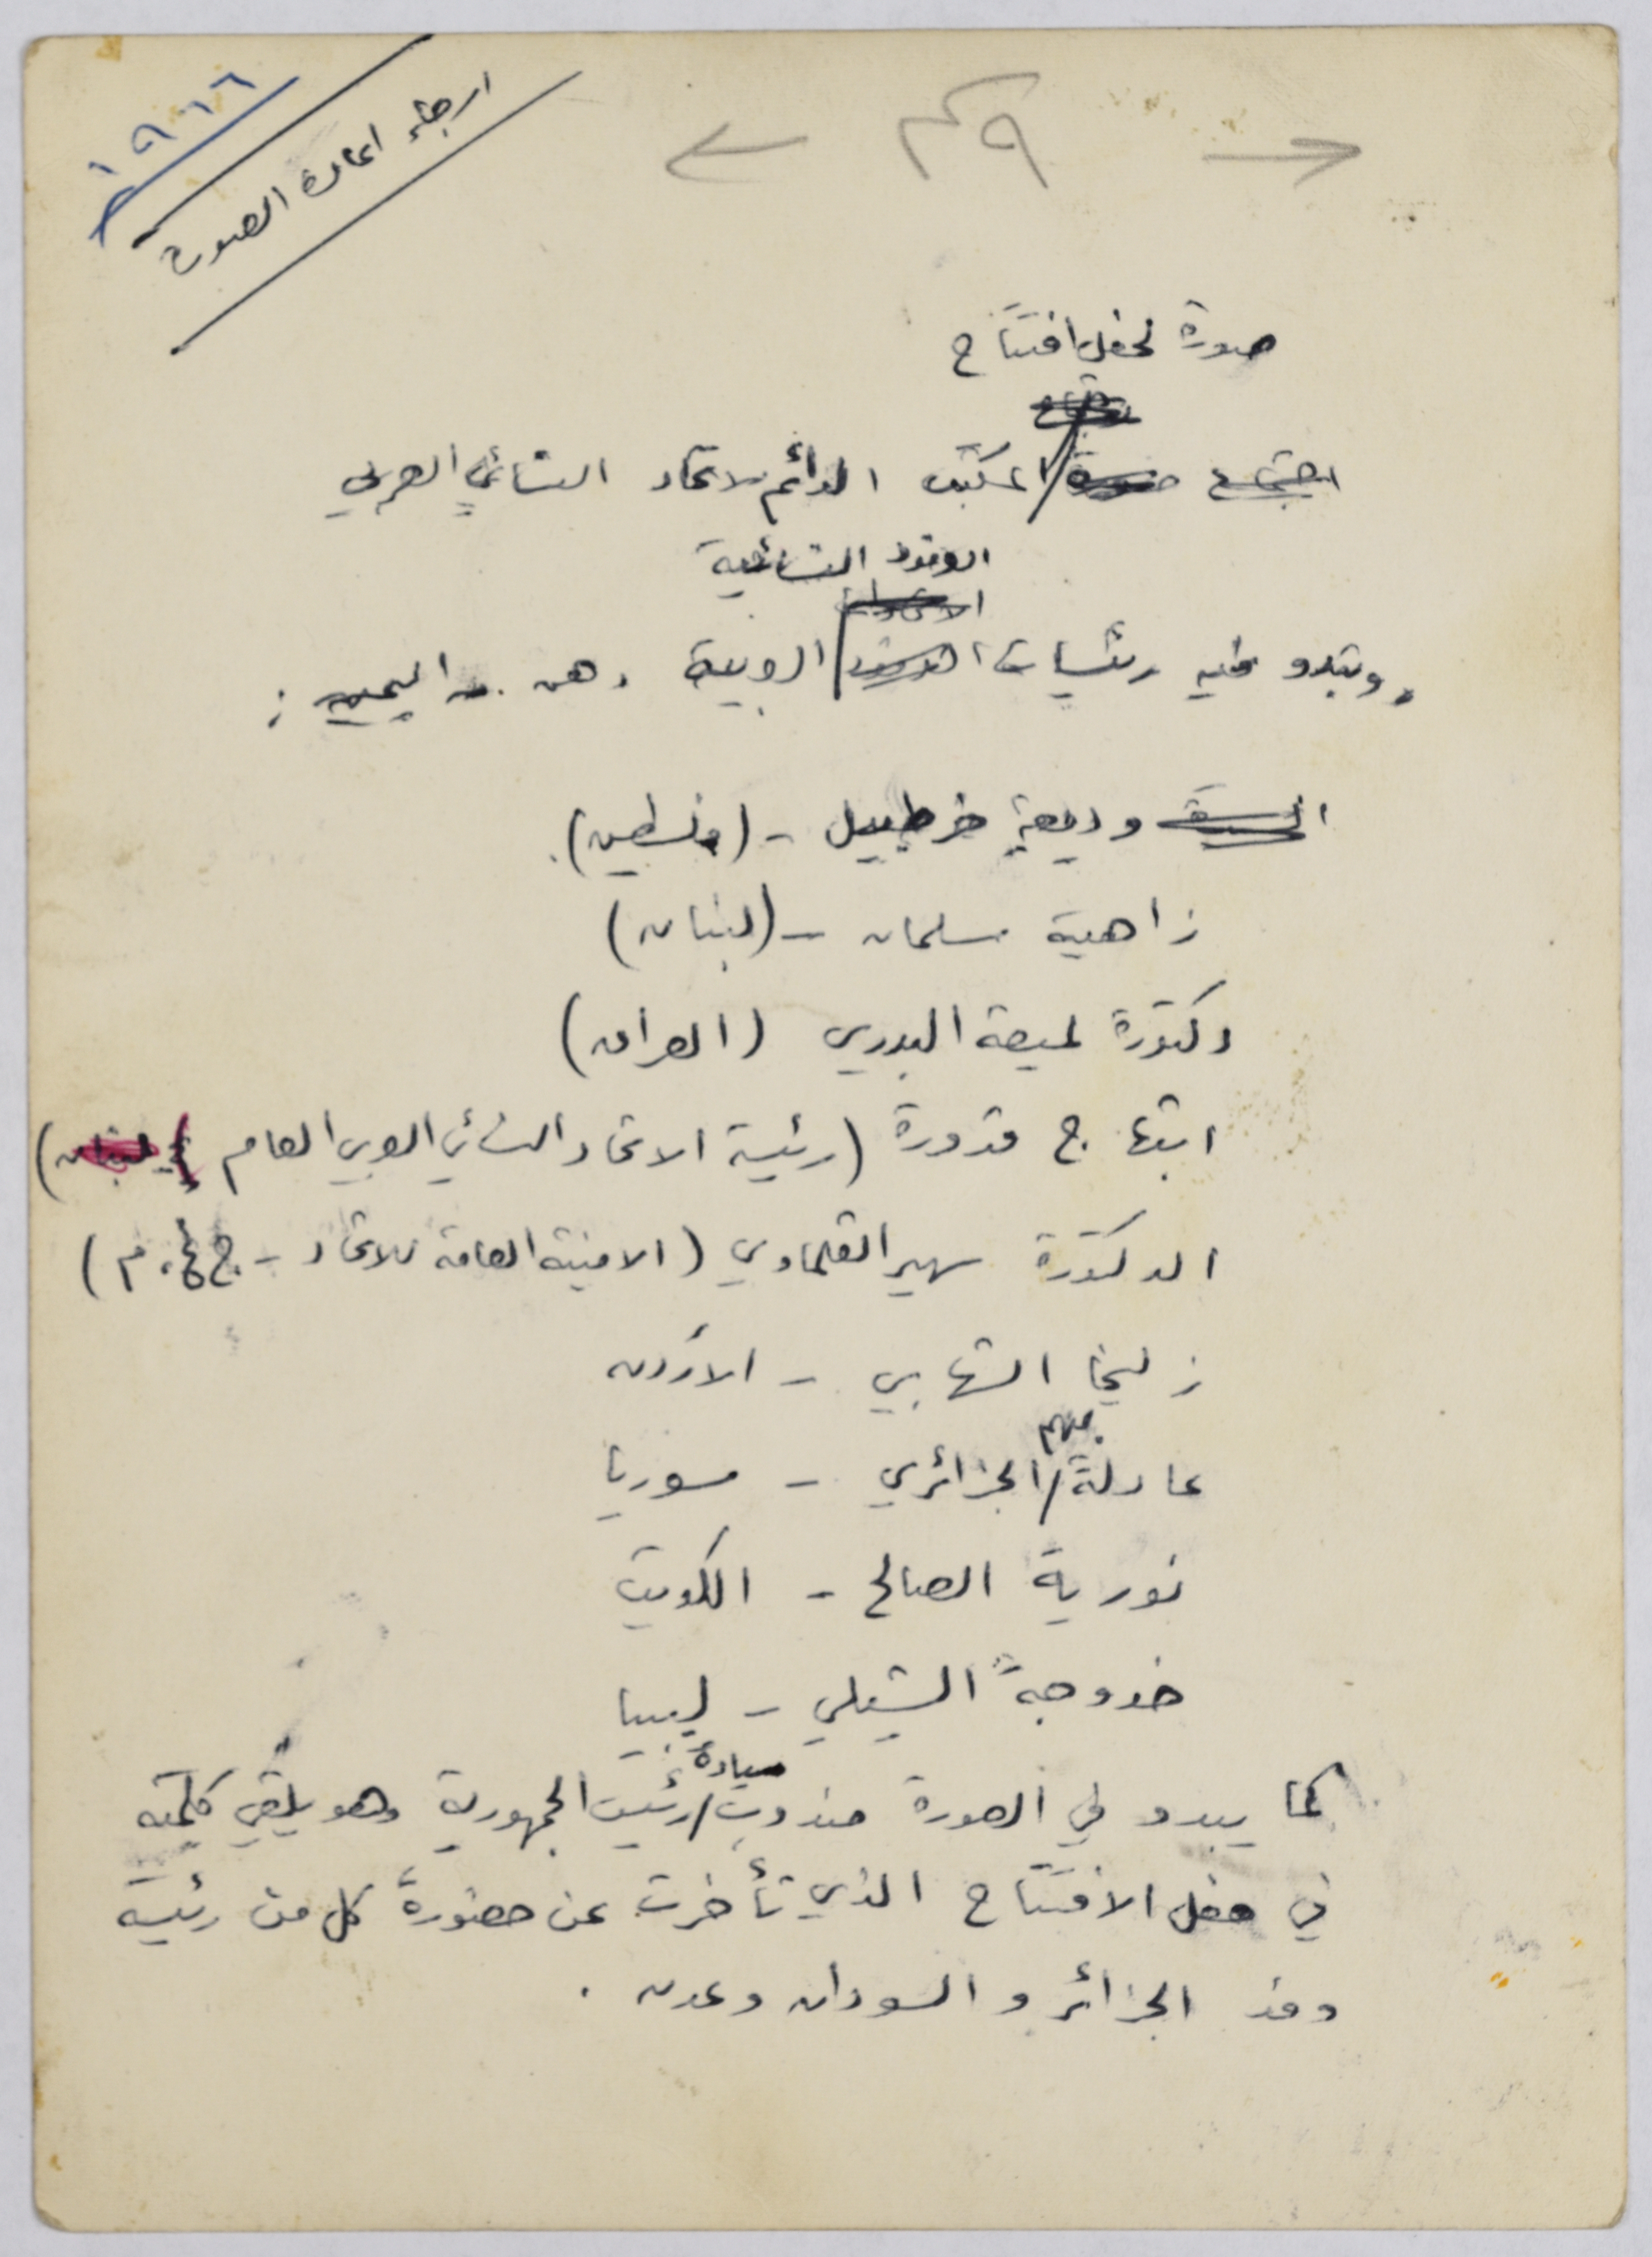 ١٩٦٦
ارجاء اعادة الصورة
٤٩
صورة لحفل افتتاح
اجتماع المكتب الدائم لاتحاد النسائي العربي
الوفود النسائية
وتبدو فيه رئيسات العربية وهن من اليمين :
السيدة وديعة خرطبيل - (فلسطين).
زاهية سلمان - (لبنان)
دكتورة لميعة البدري (العراق)
ابتهاج قدورة (رئيسة الاتحاد النسائي العربي العام لبنان)
الدكتورة سهير القلماوي (الامينة العامة للاتحاد - ج.ع.م)
زليخا الشهابي - الأردن
عادلة بيهم الجزائري - سوريا
نورية الصالح - الكويت
خدوجة الشبلي - ليبيا
كما يبدو في الصورة مندوب سيادة رئيس الجمهورية وهو يلقي كلمته
في حفل الافتتاح الذي تأخرت عن حضورة كل من رئيسة
وفد الجزائر و السودان وعدن .